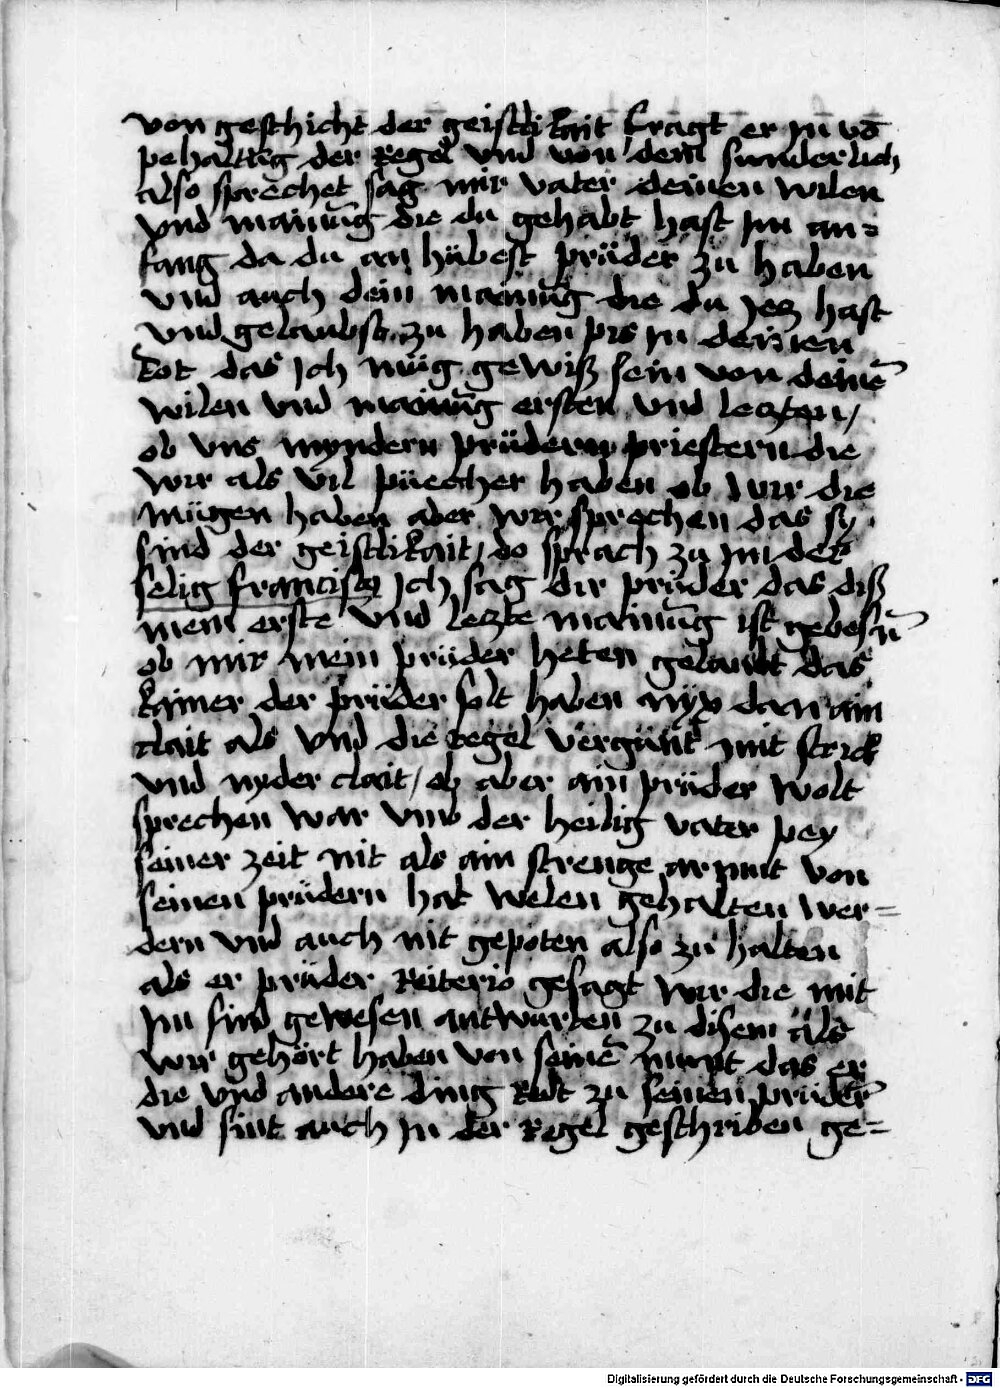 von geschicht der geistlikait fragt er in vō
pehaltūg der Regel vnd von dem sunderlich
also sprechet sag mir vater deinen wilen
vnd mainūg die du gehabt hast jm an=
fang da du an hübest prüder zü haben
vnd auch dein mainūg die du jetz hast
vnd gelaubst zu haben pis jn deinen
tot das jch müg gewiß sein von deinē
wilen vnd mainūg ersten vnd letzten /
ob vns myndern prüdern priestern die
wir als vil püecher haben ob wir die
mügen haben aber wir sprechen das sy
sind der geistlikait / do sprach zu jm der
selig franciscq jch sag dir prüder das diß
mein erste vnd letzte mainūg ist gebesn̄
ob mir mein prüder heten gelaubt das
kainer der prüder solt haben nyx dan ain
clait als vnd die regel vergünt mit strick
vnd nyder clait / ob aber ain prüder wolt
sprechen war vmb der heilig vater pey
seiner zeit nit als ain strenge armut von
seinen prüdern hat welen gehalten wer=
dern vnd auch nit gepoten also zü halten
als er prüder Reiterio gesagt wir die mit
jm sind gewesen antwurten zu disem als
wir gehört haben von seinē munt das er
die vnd andere ding Redt zu seinen prüdern̄
vnd sint auch jn der Regel geschriben ge=
Digitalisierung gefördert durch die Deutsche Forschungsgemeinschaft - DFG